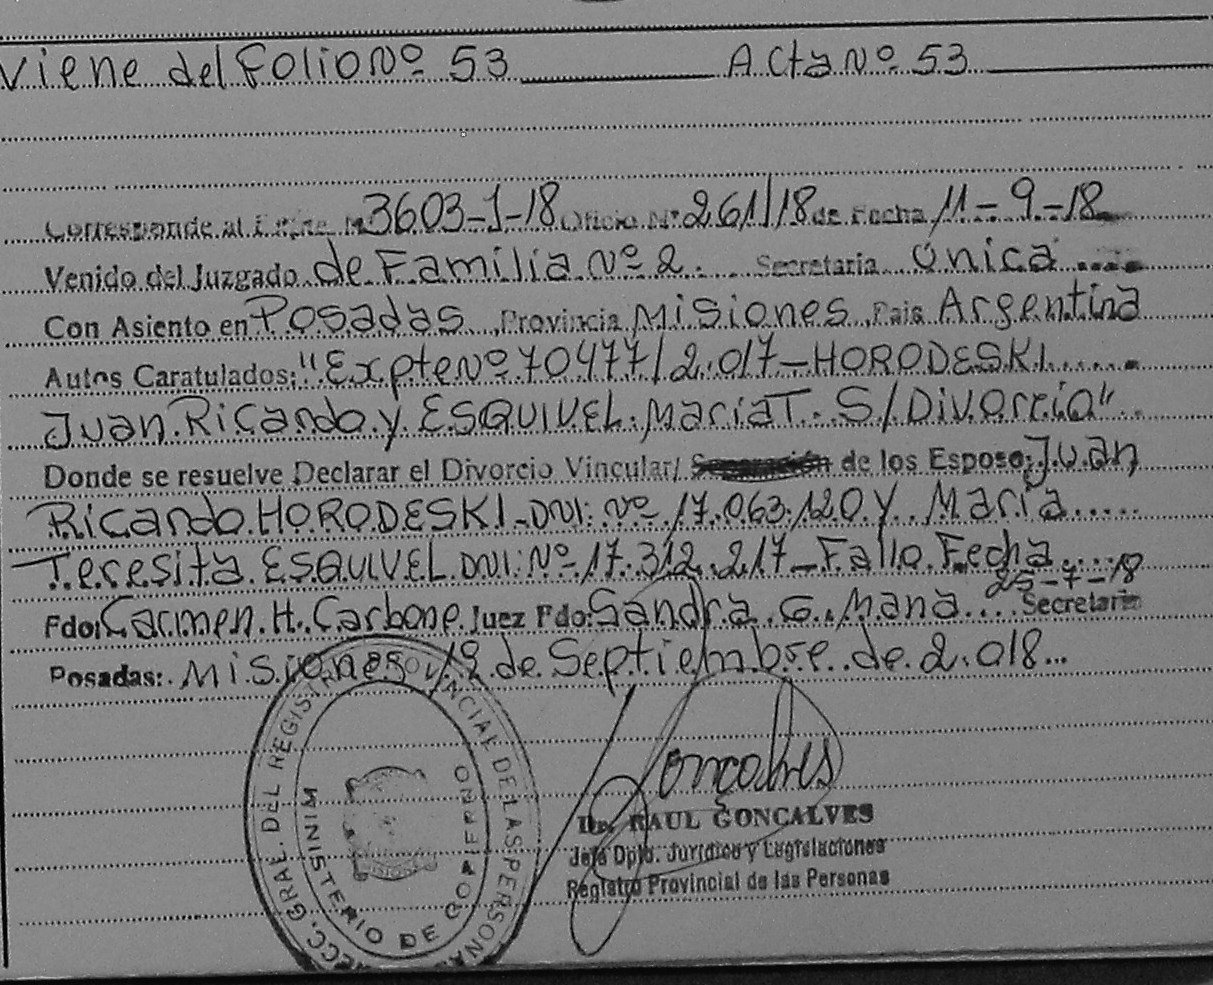 Viene del Folio Nº 53 Acta Nº 53
Corresponde al Expte. Nº 3603-1-18 Oficio Nº 261/18 de Fecha 11-9-18
Venido del Juzgado de Familia Nº 2. Secretaria Única
Con Asiento en Posadas Provincia Misiones País Argentina
Autos Caratulados: "Expte Nº 70477/2.017-HORODESKI
Juan Ricardo y ESQUIVEL María T. S/Divorcio"
Donde se resuelve Declarar el Divorcio Vincular/ Separación de los Esposo: Juan
Ricardo HORODESKI-DNI: Nº 17.063.120 y María
Teresita ESQUIVEL DNI: Nº 17.312.217-Fallo Fecha
25-7-18
Fdo: Carmen H. Carbone Juez Fdo: Sandra G. Mana Secretario
Posadas: Misiones 12 de Septiembre de 2.018
Goncalves
Dr. RAUL GONCALVES
Jefe Dpto. Jurídico y Legislaciones
Registro Provincial de las Personas
DIRECC. GRAL. DEL REGISTRO PROVINCIAL DE LAS PERSONAS
MINISTERIO DE GOBIERNO
MISIONES